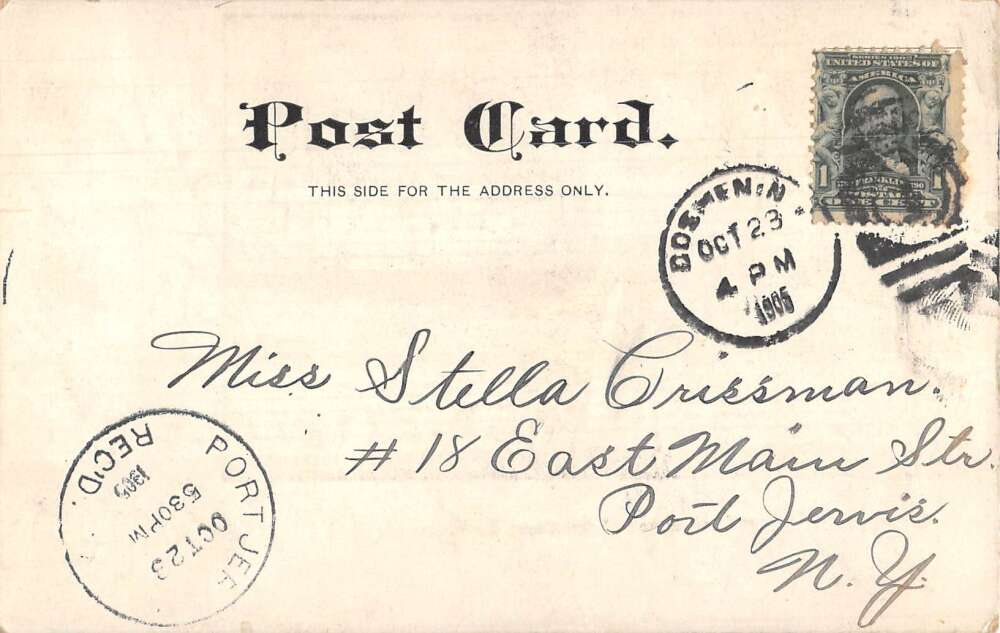 SERIES 1902
UNITED STATES OF
AMERICA
1 1
ONE CENT
Post Card.
THIS SIDE FOR THE ADDRESS ONLY.
OCT 23
4 PM
1905
Miss Stella Crissman.
# 18 East Main Str.
Port Jervis.
N. Y.
PORT JE
OCT 23
530PM
1905
REC'D.